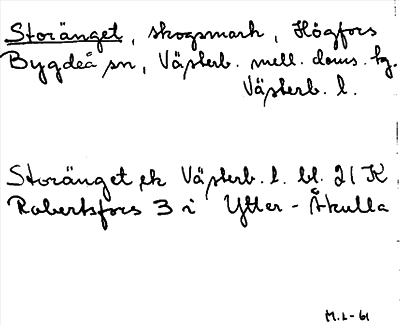 Storänget, skogsmark, Högfors
Bygdeå sn, Västerb. mell. doms. hg.
Västerb. l.
Storänget ek Västerb. l. bl. 21 K
Robertsfors 3 i Ytter-Åkulla
M.L-61